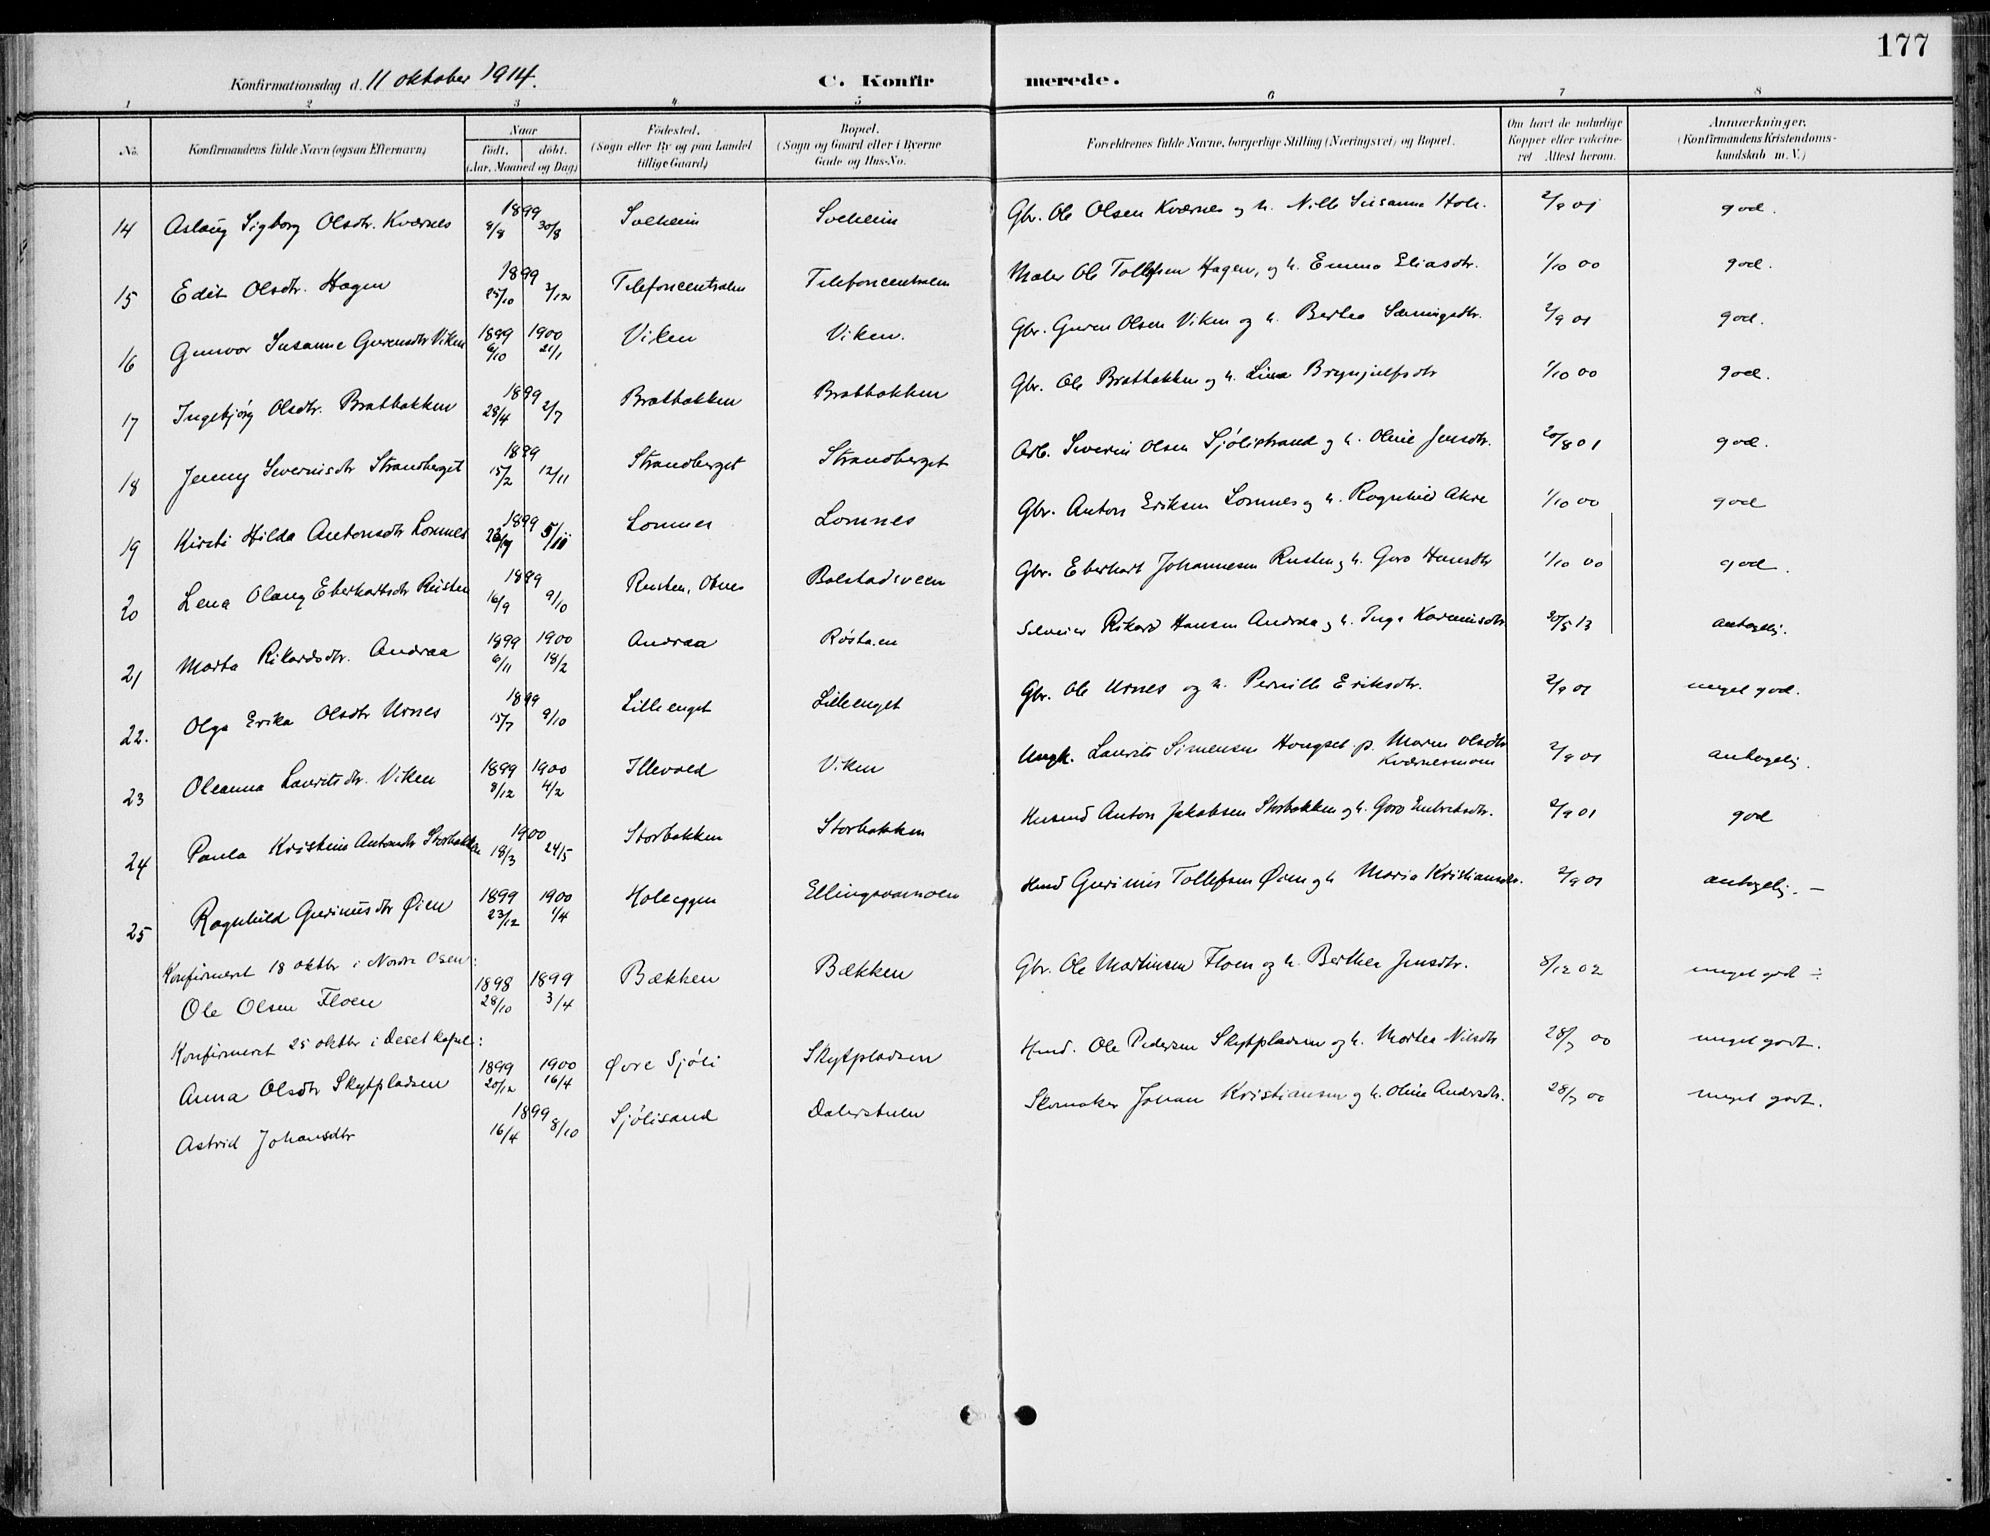 177
Konfirmationsdag d. 11 oktober 1914. C. Konfirmerede.
1 2 3 4 5 6 7 8
No. Konfirmandens fulde Navn (ogsaa Efternavn) Naar født. døbt. (Aar, Maaned og Dag) Fødested. (Sogn eller By og paa Landet tillige Gaard) Bopæl. (Sogn og Gaard eller i Byerne Gade og Hus-No. Forældrenes fulde Navne, borgerlige Stilling (Næringsvei) og Bopæl. Om havt de naturlige Kopper eller vakcineret Attest herom. Anmærkninger. (Konfirmandens Kristendomskundskab m. V.)
14 Aslaug Sigborg Olsdtr. Kværnes 1899 8/8 30/8 Solheim Solheim Gbr. Ole Olsen Kværnes og h. Nille Susanne Holc. 2/9 01 god.
15 Edit Olsdtr. Hagen 1899 25/10 3/12 Telefoncentralen Telefoncentralen Maler Ole Tollefsen Hagen, og h. Emma Eliasdtr. 1/10 00 god.
16 Gunvor Susanne Gurensdtr Viken 1899 6/10 1900 21/1 Viken Viken. Gbr. Guren Olsen Viken og h. Bertea Sæmingsdtr. 2/9 01 god.
17 Ingebjørg Olsdtr. Bratbakken 1899 28/4 2/7 Bratbakken Bratbakken Gbr. Ole Bratbakken og h. Lina Brynjulfsdtr 1/10 00 god.
18 Jenny Severinsdtr Strandberget 1899 15/2 12/11 Strandberget Strandberget Arb. Severin Olsen Sjølistrand og h. Oline Jensdtr. 20/8 01 god.
19 Kirsti Hilda Antonsdtr Lomnes 1899 5/11 Lomnes Lomnes Gbr. Anton Eriksen Lomnes og h. Ragnhild Akre 1/10 00 god
20 Lena Olaug Eberhartsdtr Rusten 1899 16/9 9/10 Rusten, Otnes Bolstadsveen Gbr. Eberhart Johannesen Rusten og h. Goro Hansdtr 1/10 00 god.
21 Marta Rikardsdtr. Andraa 1899 6/11 1900 18/2 Andraa Røstaen Selveier Rikard Hansen Andraa og h. Inga Karinusdtr 30/5 13 antagelig.
22. Olga Erika Olsdtr Urnes 1899 15/7 9/10 Lilleenget Lilleenget Gbr. Ole Urnes og h. Pernille Eriksdtr. 2/9 01 meget god.
23 Oleanna Lauritsdtr. Viken 1899 8/12 1900 4/2 Illevold Viken Ungk. Laurits Simensen Hongset. p. Maren Olsdtr Kværnesmoen 2/9 01 antagelig.
24 Paula Kristine Antonsdtr Storbakken 1900 18/3 24/5 Storbakken Storbakken Husmd Anton Jakobsen Storbakken og h. Goro Embretsdtr. 2/9 01 god
25 Ragnhild Gurinusdtr Øien 1899 23/12 1900 1/4 Holeggen Ellingsvamoen Hmd Gurinus Tollefsen Øien og h Maria Kristiansdtr. 2/9 01 antagelig. —
Konfirmeret 18 oktbr i Nordre Osen:
Ole Olsen Floen 1898 28/10 1899 3/4 Bækken Bækken Gbr. Ole Martinsen Floen og h. Berthea Jensdtr. 8/12 02 meget god ÷
Konfirmeret 25 oktbr i Deset Kapel:
Anna Olsdtr Skytpladsen 1899 20/12 1900 16/4 Øvre Sjøli Skytpladsen Hmd. Ole Pedersen Skytpladsen og h. Martea Nilsdtr 28/7 00 meget godt.
Astrid Johansdtr 1899 16/4 8/10 Sjølisand Dalerstulen Skomaker Johan Kristiansen og h. Oline Andersdtr. 28/7 00 meget godt.